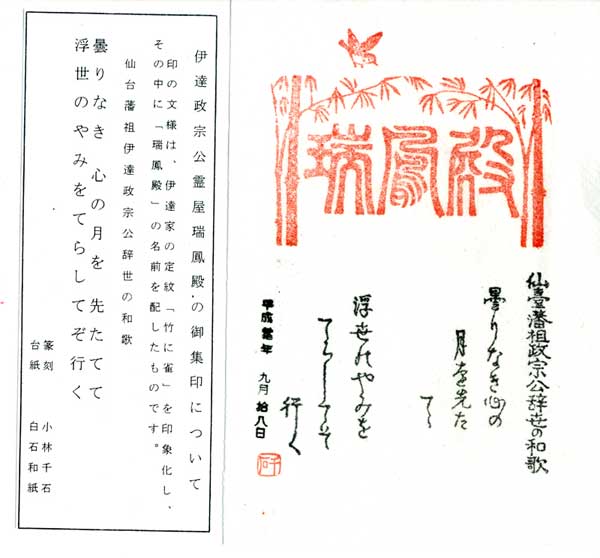 瑞鳳殿
仙臺藩祖政宗公辞世の和歌
曇りなき心の
月を先た
てゝ
浮世のやみを
てらしてそ
行く
平成壹年 九月拾八日
伊達政宗公霊屋瑞鳳殿の御集印について
印の文様は、伊達家の定紋「竹に雀」を印象化し、
その中に「瑞鳳殿」の名前を配したものです。
仙台藩祖伊達政宗公辞世の和歌
曇りなき 心の月を 先たてて
浮世のやみをてらしてぞ行く
篆刻 小林千石
台紙 白石和紙